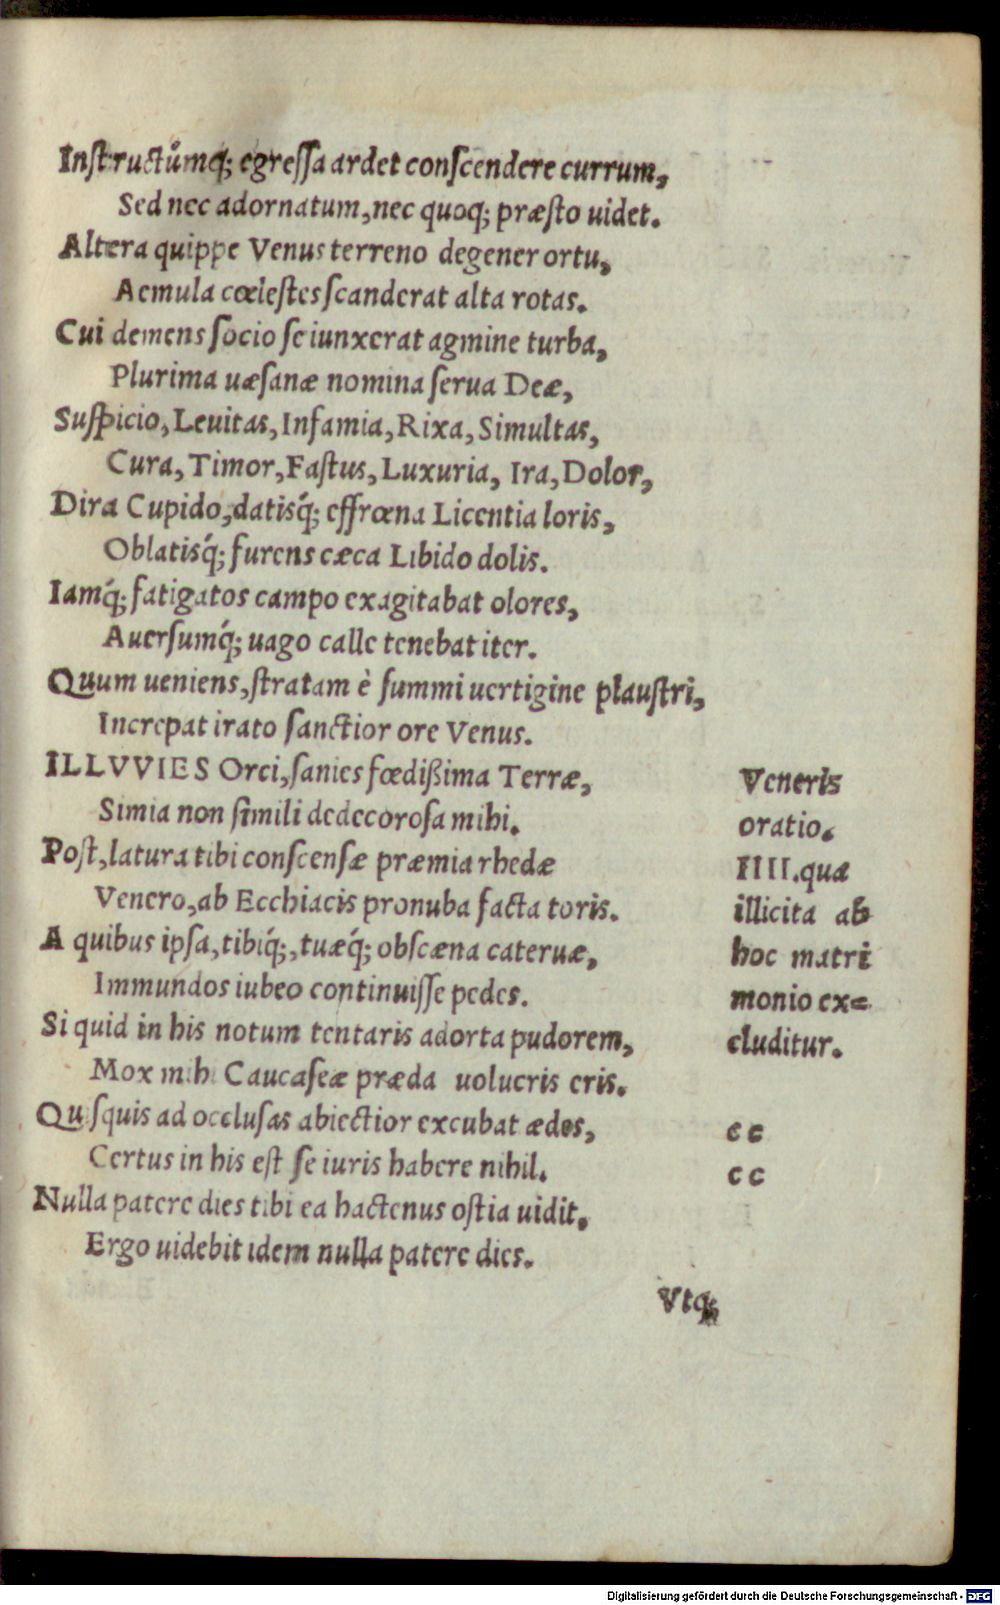 Instructũmq; egressa ardet conscendere currum,
Sed nec adornatum, nec quoq; præsto uidet.
Altera quippe Venus terreno degener ortu,
Aemula cœlestes scanderat alta rotas.
Cui demens socio se iunxerat agmine turba,
Plurima uæsanæ nomina serua Deæ,
Suspicio, Leuitas, Infamia, Rixa, Simultas,
Cura, Timor, Fastus, Luxuria, Ira, Dolor,
Dira Cupido, datisq́; effrœna Licentia loris,
Oblatisq́; furens cæca Libido dolis.
Iamq́; fatigatos campo exagitabat olores,
Auersumq́; uago calle tenebat iter.
Quum ueniens, stratam è summi uertigine plaustri,
Increpat irato sanctior ore Venus.
ILLVVIES Orci, sanies fœdißima Terræ,
Simia non simili dedecorosa mihi.
Post, latura tibi conscensæ præmia rhedæ
Venero, ab Ecchiacis pronuba facta toris.
A quibus ipsa, tibiq́;, tuæq́; obscæna cateruæ,
Immundos iubeo continuisse pedes.
Si quid in his notum tentaris adorta pudorem,
Mox mihi Caucaseæ præda uolucris eris.
Quisquis ad occlusas abiectior excubat ædes,
Certus in his est se iuris habere nihil.
Nulla patere dies tibi ea hactenus ostia uidit,
Ergo uidebit idem nulla patere dies.
Vtq;
Veneris
oratio.
IIII. qua
illicita ab
hoc matri
monio ex=
cluditur.
c c
c c
Digitalisierung gefördert durch die Deutsche Forschungsgemeinschaft - DFG